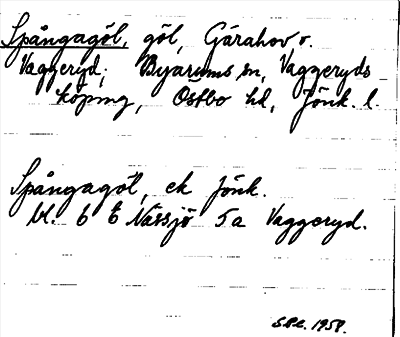 Spångagöl, göl, Gårahov o.
Vaggeryd, Byarums sn, Vaggeryds
köping, Östbo hd, Jönk. l.
Spångagöl, ek Jönk.
bl. 6 E Nässjö 5a Vaggeryd.
1958.